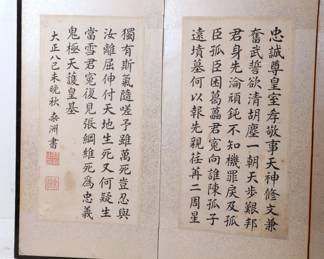 忠誠尊皇室孝敬事天神修文兼
奮武誓欲清胡塵一朝天步艱邦
君身先淪頑鈍不知機罪戾及孤
臣孤臣困葛藟君寃向誰陳孤子
遠墳墓何以報先親荏苒二周星
獨有斯氣隨嗟予雖萬死豈忍與
汝離屈伸付天地生死又何疑生
當雪君寃復見張綱維死爲忠義
鬼極天護皇基
大正八己未晩秋 桑洲書